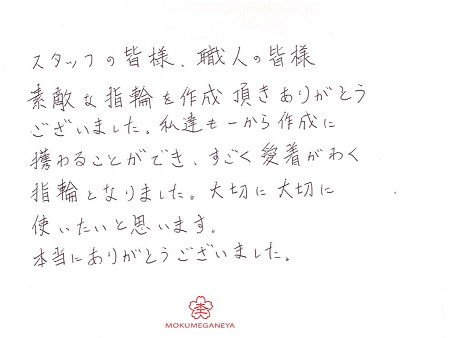 スタッフの皆様、職人の皆様
素敵な指輪を作成頂きありがとう
ございました。私達も一から作成に
携わることができ、すごく愛着がわく
指輪となりました。大切に大切に
使いたいと思います。
本当にありがとうございました。
MOKUMEGANEYA